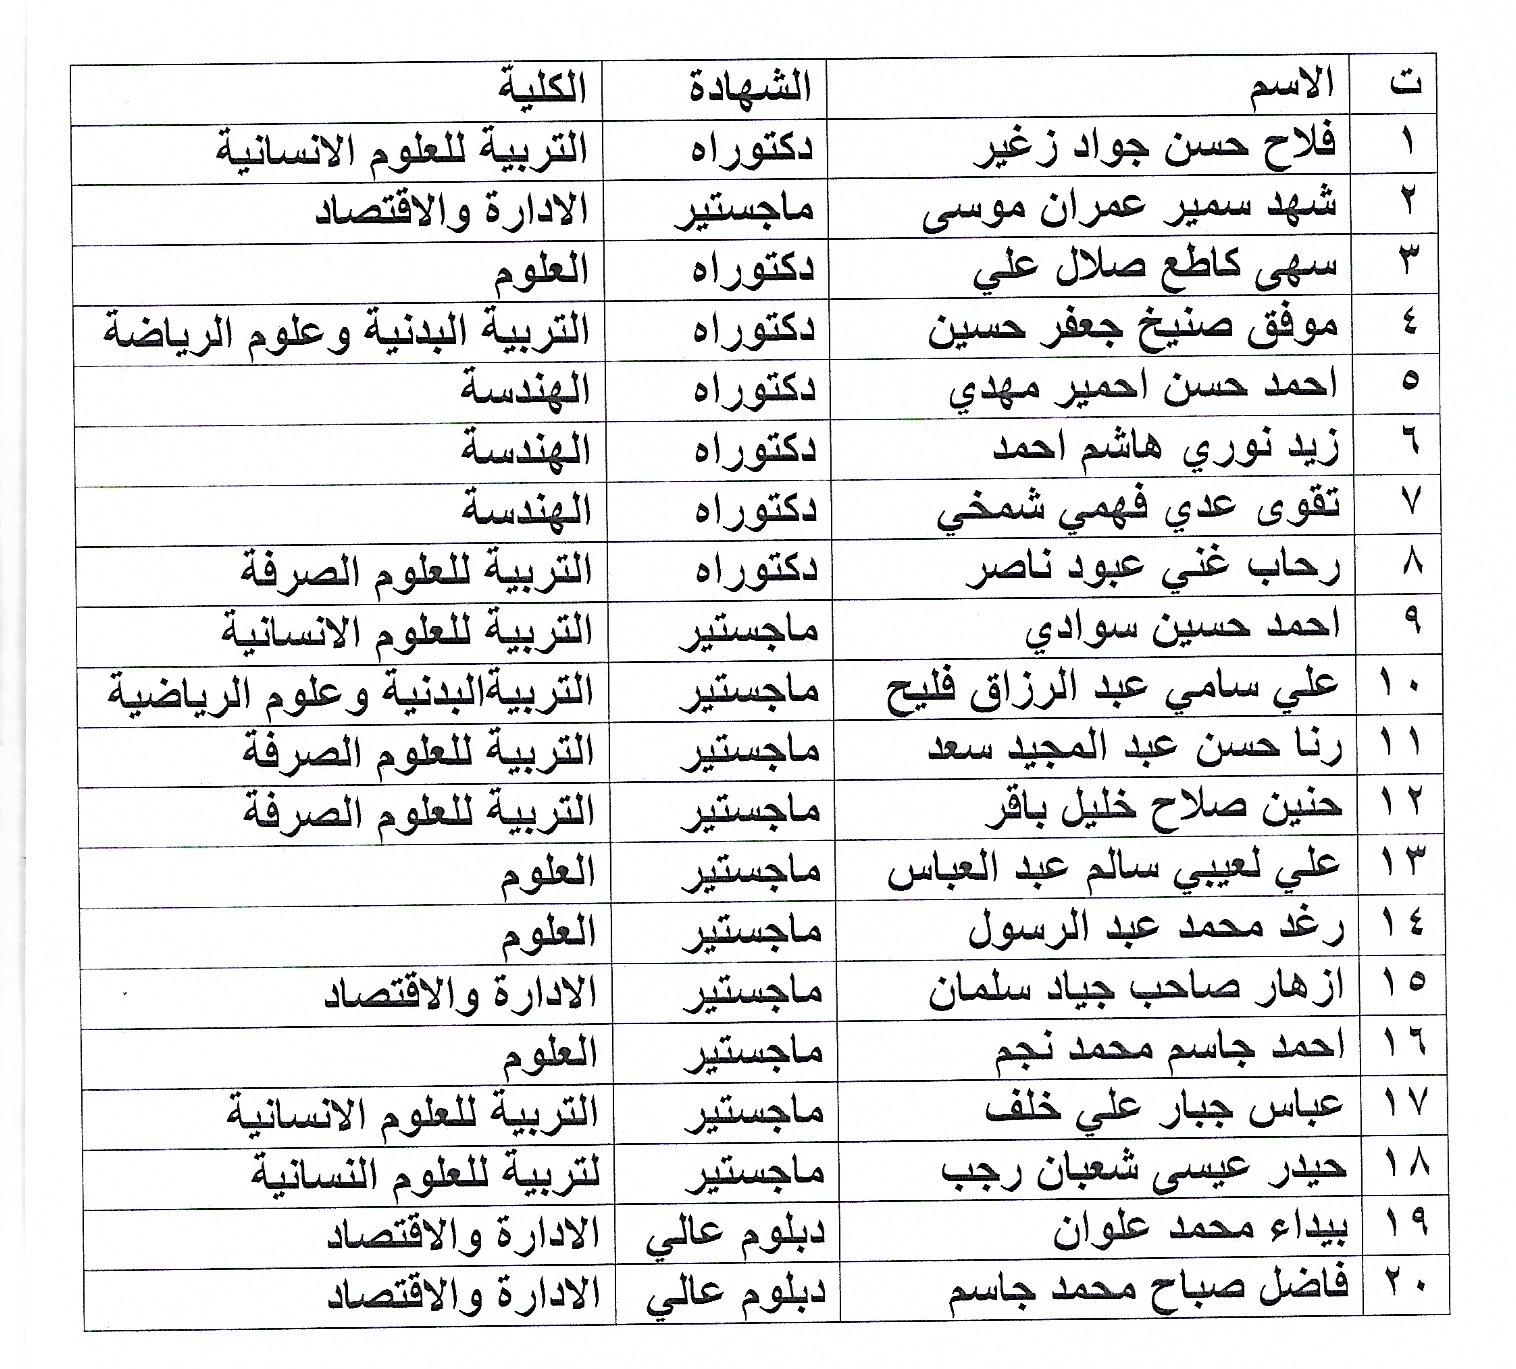 ت الاسم الشهادة الكلية
١ فلاح حسن جواد زغير دكتوراه التربية للعلوم الانسانية
٢ شهد سمير عمران موسى ماجستير الادارة والاقتصاد
٣ سهى كاطع صلال علي دكتوراه العلوم
٤ موفق صنيخ جعفر حسين دكتوراه التربية البدنية وعلوم الرياضة
٥ احمد حسن احمير مهدي دكتوراه الهندسة
٦ زيد نوري هاشم احمد دكتوراه الهندسة
٧ تقوى عدي فهمي شمخي دكتوراه الهندسة
٨ رحاب غني عبود ناصر دكتوراه التربية للعلوم الصرفة
٩ احمد حسين سوادي ماجستير التربية للعلوم الانسانية
١٠ علي سامي عبد الرزاق فليح ماجستير التربيةالبدنية وعلوم الرياضية
١١ رنا حسن عبد المجيد سعد ماجستير التربية للعلوم الصرفة
١٢ حنين صلاح خليل باقر ماجستير التربية للعلوم الصرفة
١٣ علي لعيبي سالم عبد العباس ماجستير العلوم
١٤ رغد محمد عبد الرسول ماجستير العلوم
١٥ ازهار صاحب جياد سلمان ماجستير الادارة والاقتصاد
١٦ احمد جاسم محمد نجم ماجستير العلوم
١٧ عباس جبار علي خلف ماجستير التربية للعلوم الانسانية
١٨ حيدر عيسى شعبان رجب ماجستير لتربية للعلوم النسانية
١٩ بيداء محمد علوان دبلوم عالي الادارة والاقتصاد
٢٠ فاضل صباح محمد جاسم دبلوم عالي الادارة والاقتصاد